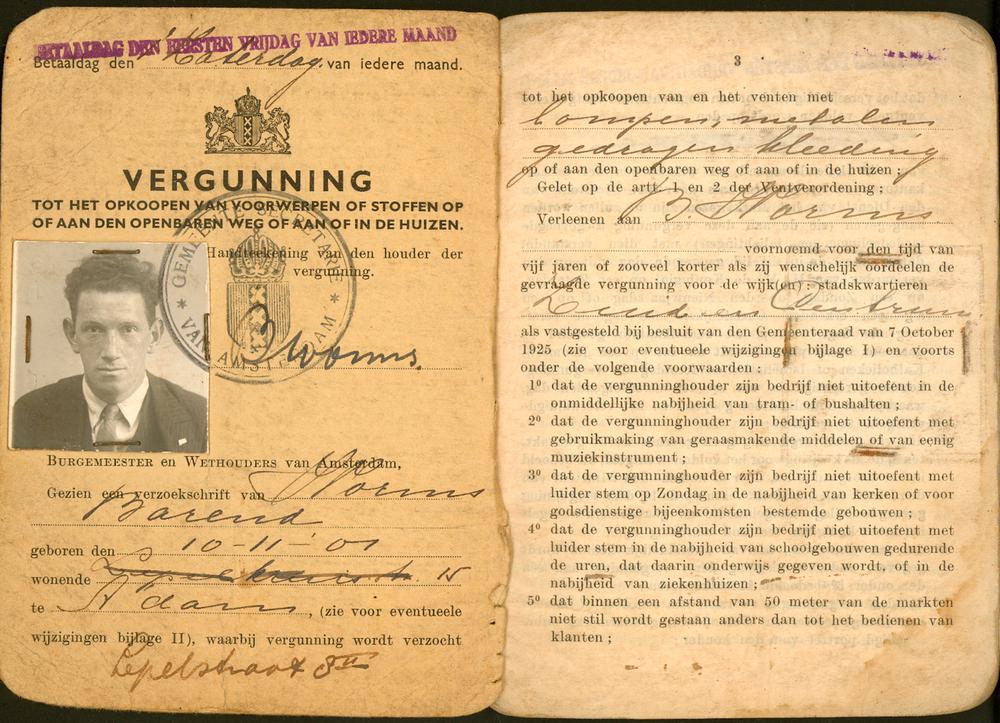 BETAALDAG DEN EERSTEN VRIJDAG VAN IEDERE MAAND
Betaaldag den Zaterdag van iedere maand.
VERGUNNING
TOT HET OPKOOPEN VAN VOORWERPEN OF STOFFEN OP
OF AAN DEN OPENBAREN WEG OF AAN OF IN DE HUIZEN.
Handteekening van den houder der
vergunning.
GEMEENTE SECRETARIE * VAN AMSTERDAM *
B Worms.
BURGEMEESTER en WETHOUDERS van Amsterdam,
Gezien een verzoekschrift van Worms
Barend
geboren den 10-11-'01
wonende 15
te A'dam, (zie voor eventueele
wijzigingen bijlage II), waarbij vergunning wordt verzocht
Lepelstraat 8 II
3
tot het opkoopen van en het venten met
lompen, metalen
gedragen kleeding
op of aan den openbaren weg of aan of in de huizen;
Gelet op de artt. 1 en 2 der Ventverordening;
Verleenen aan B. Worms
voornoemd voor den tijd van
vijf jaren of zooveel korter als zij wenschelijk oordeelen de
gevraagde vergunning voor de wijk(en): stadskwartieren
Zuid en Centrum
als vastgesteld bij besluit van den Gemeenteraad van 7 October
1925 (zie voor eventueele wijzigingen bijlage I) en voorts
onder de volgende voorwaarden:
1⁰ dat de vergunninghouder zijn bedrijf niet uitoefent in de
onmiddellijke nabijheid van tram- of bushalten;
2⁰ dat de vergunninghouder zijn bedrijf niet uitoefent met
gebruikmaking van geraasmakende middelen of van eenig
muziekinstrument;
3⁰ dat de vergunninghouder zijn bedrijf niet uitoefent met
luider stem op Zondag in de nabijheid van kerken of voor
godsdienstige bijeenkomsten bestemde gebouwen;
4⁰ dat de vergunninghouder zijn bedrijf niet uitoefent met
luider stem in de nabijheid van schoolgebouwen gedurende
de uren, dat daarin onderwijs gegeven wordt, of in de
nabijheid van ziekenhuizen;
5⁰ dat binnen een afstand van 50 meter van de markten
niet stil wordt gestaan anders dan tot het bedienen van
klanten;